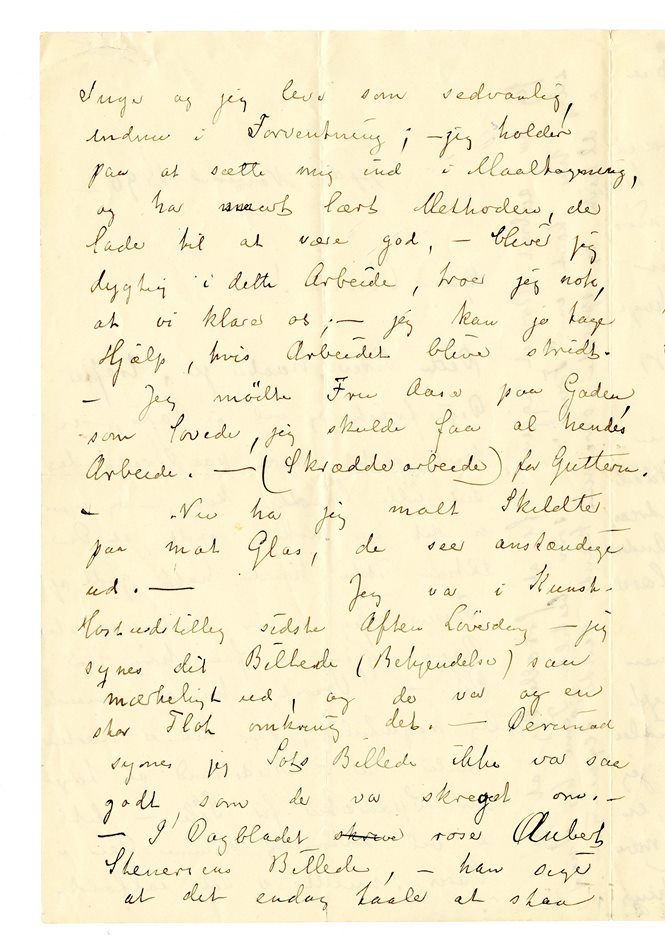 Inger og jeg leve som sedvanlig,
endnu i Forventning; – jeg holder
paa at sætte mig ind i Maaltagning,
og har snart lært Methoden, de
lade til at være god, – bliver jeg
dygtig i dette Arbeide, troer jeg nok,
at vi klarer os; – jeg kan jo tage
Hjælp, hvis Arbeidet blive stridt. –
– Jeg mödte Fru Aase paa Gaden,
som lovede, jeg skulde faa al hendes
Arbeide. – (Skrædderarbeide) for Guttern.
– Nu ha jeg malt Skildter
paa mat Glas, de seer anstændige
ud. – Jeg va i Kunst-
Höstudstilleg sidste Aften Löverdag – jeg
synes dit Billede (Bekjendelse) saa
mærkeligt ud, og de var og en
stor Flok omkring det. – Derimod
synes jeg Sots Billede ikke va saa
godt, som de va skreget om. –
– I Dagbladet skrive rose Aubert
Stenersens Billede, – han sige
at det endog taale at staa